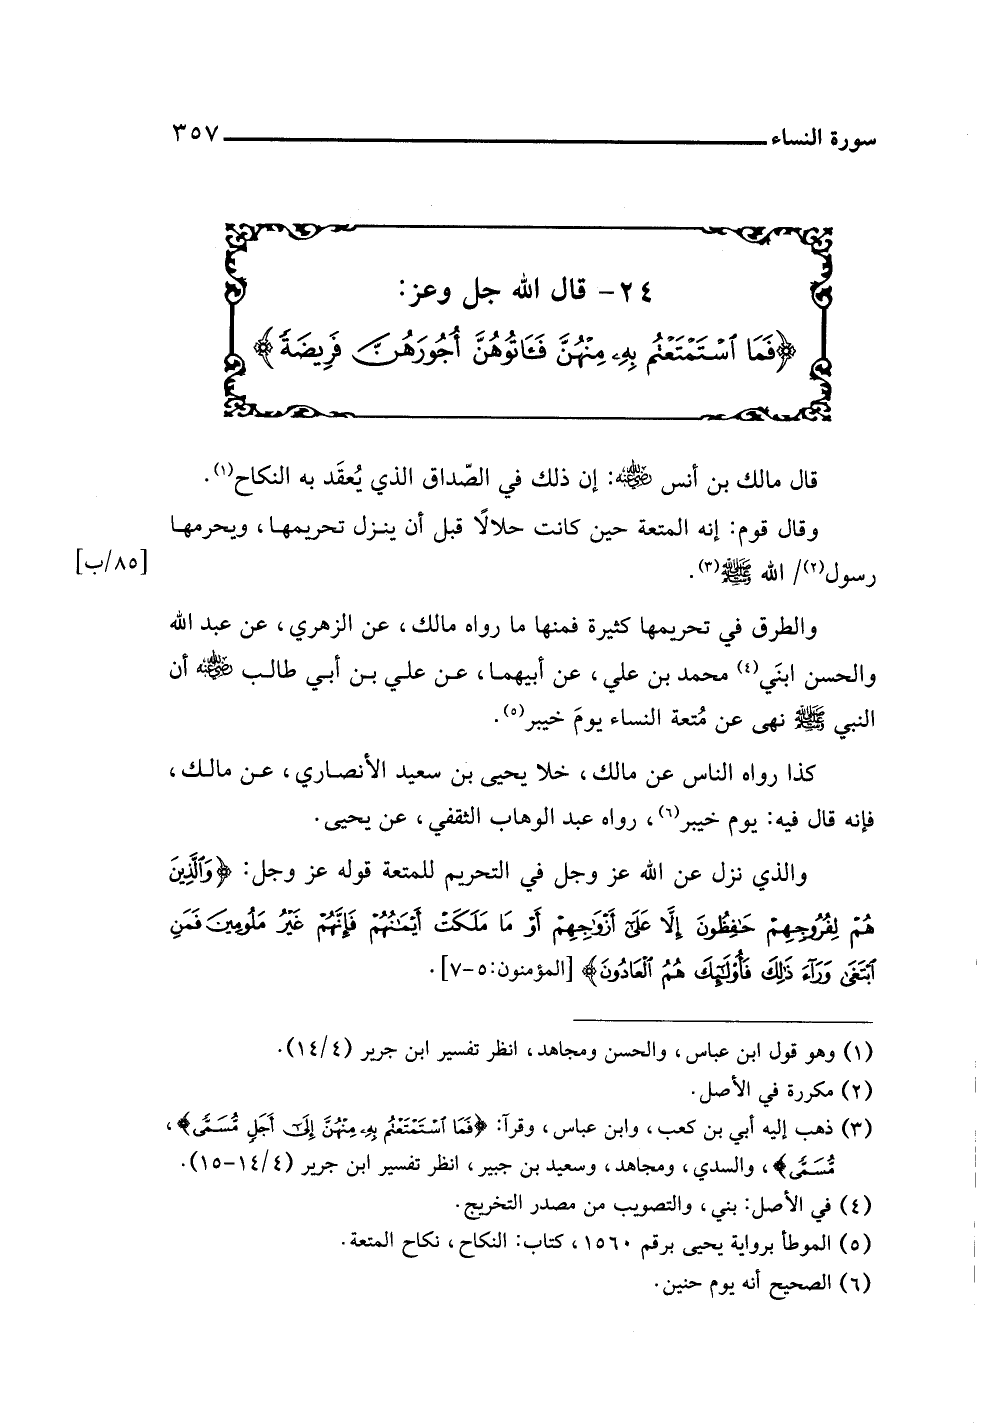 سورة النساء ٣٥٧
٢٤- قال الله جل وعز:
﴿فَمَا ٱسْتَمْتَعْتُم بِهِۦ مِنْهُنَّ فَـَٔاتُوهُنَّ أُجُورَهُنَّ فَرِيضَةً﴾
قال مالك بن أنس رضي الله عنه: إن ذلك في الصّداق الذي يُعقَد به النكاح(١).
وقال قوم: إنه المتعة حين كانت حلالًا قبل أن ينزل تحريمها، ويحرمها
رسول(٢)/ الله ﷺ(٣). [٨٥/ب]
والطرق في تحريمها كثيرة فمنها ما رواه مالك، عن الزهري، عن عبد الله
والحسن ابنَي(٤) محمد بن علي، عن أبيهما، عن علي بن أبي طالب رضي الله عنه أن
النبي ﷺ نهى عن مُتعة النساء يومَ خيبر(٥).
كذا رواه الناس عن مالك، خلا يحيى بن سعيد الأنصاري، عن مالك،
فإنه قال فيه: يوم خيبر(٦)، رواه عبد الوهاب الثقفي، عن يحيى.
والذي نزل عن الله عز وجل في التحريم للمتعة قوله عز وجل: ﴿وَٱلَّذِينَ
هُمْ لِفُرُوجِهِمْ حَٰفِظُونَ إِلَّا عَلَىٰٓ أَزْوَٰجِهِمْ أَوْ مَا مَلَكَتْ أَيْمَٰنُهُمْ فَإِنَّهُمْ غَيْرُ مَلُومِينَ فَمَنِ
ٱبْتَغَىٰ وَرَآءَ ذَٰلِكَ فَأُو۟لَٰٓئِكَ هُمُ ٱلْعَادُونَ﴾ [المؤمنون:٥-٧].
(١) وهو قول ابن عباس، والحسن ومجاهد، انظر تفسير ابن جرير (١٤/٤).
(٢) مكررة في الأصل.
(٣) ذهب إليه أبي بن كعب، وابن عباس، وقرآ: ﴿فَمَا ٱسْتَمْتَعْتُم بِهِۦ مِنْهُنَّ إِلَىٰٓ أَجَلٍ مُّسَمًّى﴾،
مُّسَمًّى﴾، والسدي، ومجاهد، وسعيد بن جبير، انظر تفسير ابن جرير (١٤/٤-١٥).
(٤) في الأصل: بني، والتصويب من مصدر التخريج.
(٥) الموطأ برواية يحيى برقم ١٥٦٠، كتاب: النكاح، نكاح المتعة.
(٦) الصحيح أنه يوم حنين.